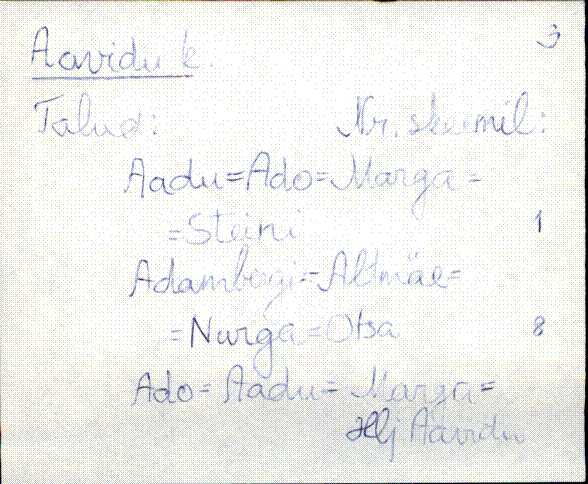 3
Aavidu k.
Talud: Nr. skeemil:
Aadu=Ado=Marga=
=Steini 1
Adambogi=Altmäe=
=Nurga=Otsa 8
Ado=Aadu=Marga=
Hlj Aavidu